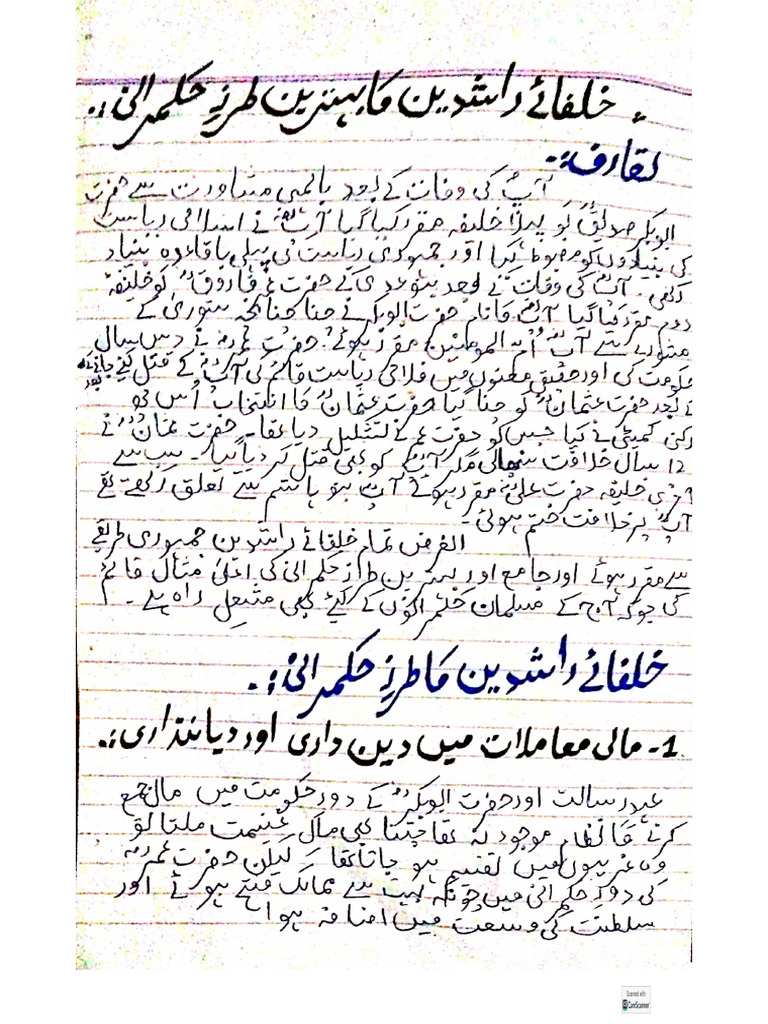 خلفائے راشدین کا بہترین طرزِ حکمرانی:.
تعارف:.
آپؐ کی وفات کے بعد باہمی مشاورت سے حضرت
ابوبکر صدیقؓ کو پہلا خلیفہ مقرر کیا گیا آپؓ نے اسلامی ریاست
کی بنیادوں کو مضبوط کیا اور جمہوری ریاست کی پہلی باقاعدہ بنیاد
رکھی۔ آپؓ کی وفات کے بعد حضرت عمر فاروقؓ کو خلیفہ
دوم مقرر کیا گیا آپؓ کا نام حضرت ابوبکر نے چنا چنانچہ شوریٰ کے
مشورے سے آپؓ المومنین مقرر ہوئے۔ حضرت عمرؓ نے دس سال
حکومت کی اور حقیقی معنوں میں فلاحی ریاست قائم کی آپؓ کے قتل کیے جانے کے
بعد حضرت عثمانؓ کو چنا گیا حضرت عثمانؓ کا انتخاب اُس
رکنی کمیٹی نے کیا جس کو حضرت عمر نے تشکیل دیا تھا۔ حضرت عثمانؓ نے
12 سال خلافت سنبھالی مگر آپؓ کو بھی قتل کر دیا گیا۔ سب سے
آخری خلیفہ حضرت علیؓ مقرر ہوئے آپؓ بنو ہاشم سے تعلق رکھتے تھے
آپؓ پر خلافت ختم ہوئی۔
الغرض تمام خلفائے راشدین جمہوری طریقے
سے مقرر ہوئے اور جامع اور بہترین طرز حکمرانی کی اعلیٰ مثال قائم
کی جوکہ آج کے مسلمان حکمرانوں کے لیے بھی مشعل راہ ہے۔
خلفائے راشدین کا طرزِ حکمرانی:.
1- مالی معاملات میں دین داری اور دیانتداری:.
عہد رسالت اور حضرت ابوبکرؓ کے دور حکومت میں مال جمع
کرنے کا نظام موجود نہ تھا جتنا بھی مال غنیمت ملتا تو
وہ غریبوں میں تقسیم ہو جاتا تھا۔ لیکن حضرت عمرؓ
کی دورِ حکمرانی میں چونکہ بہت سے ممالک فتح ہوئے اور
سلطنت کی وسعت میں اضافہ ہوا
Scanned with
CamScanner